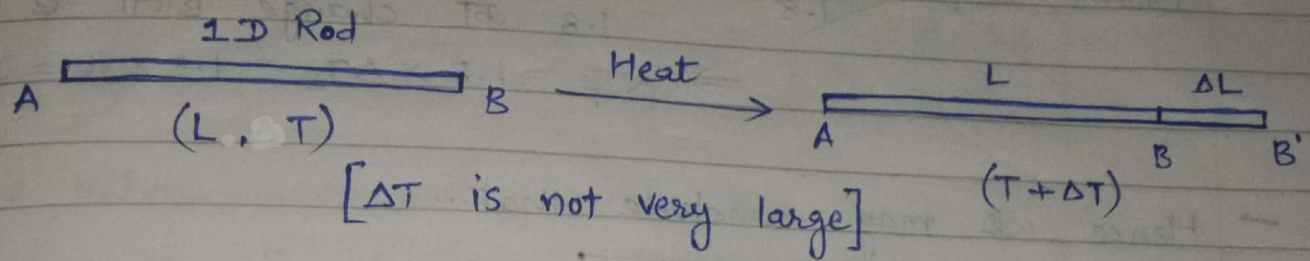 1D Rod
A B
(L, T)
Heat
L ΔL
A B B'
(T + ΔT)
[ΔT is not very large]